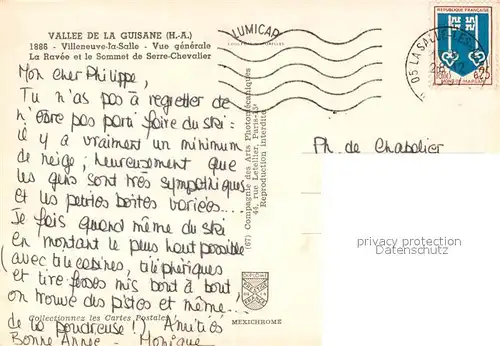 VALLEE DE LA GUISANE (H.-A.)
1886 - Villeneuve-la-Salle - Vue générale
La Ravée et le Sommet de Serre-Chevalier
Mon cher Philippe,
Tu n'as pas à regretter de
n'être pas parti faire du ski :
il y a vraiment un minimum
de neige ; heureusement que
les gens sont très sympathiques
et les petites boîtes variées...
Je fais quand même du ski
en montant le plus haut possible
(avec télécabines, téléphériques
et tire fesses mis bout à bout,
on trouve des pistes et même...
de la poudreuse !). Amitiés
Bonne Année - Monique
Collectionnez les Cartes Postales !
LUMICAP
(67) Compagnie des Arts Photomécaniques
44, rue Letellier, Paris-15e
Reproduction interdite
DIPLOME
MEXICHROME
05 LA SALLE-LES
REPUBLIQUE FRANÇAISE
0,25
MONT-DE-MARSAN
Ph. de Chabalier
privacy protection watermark
not on the original